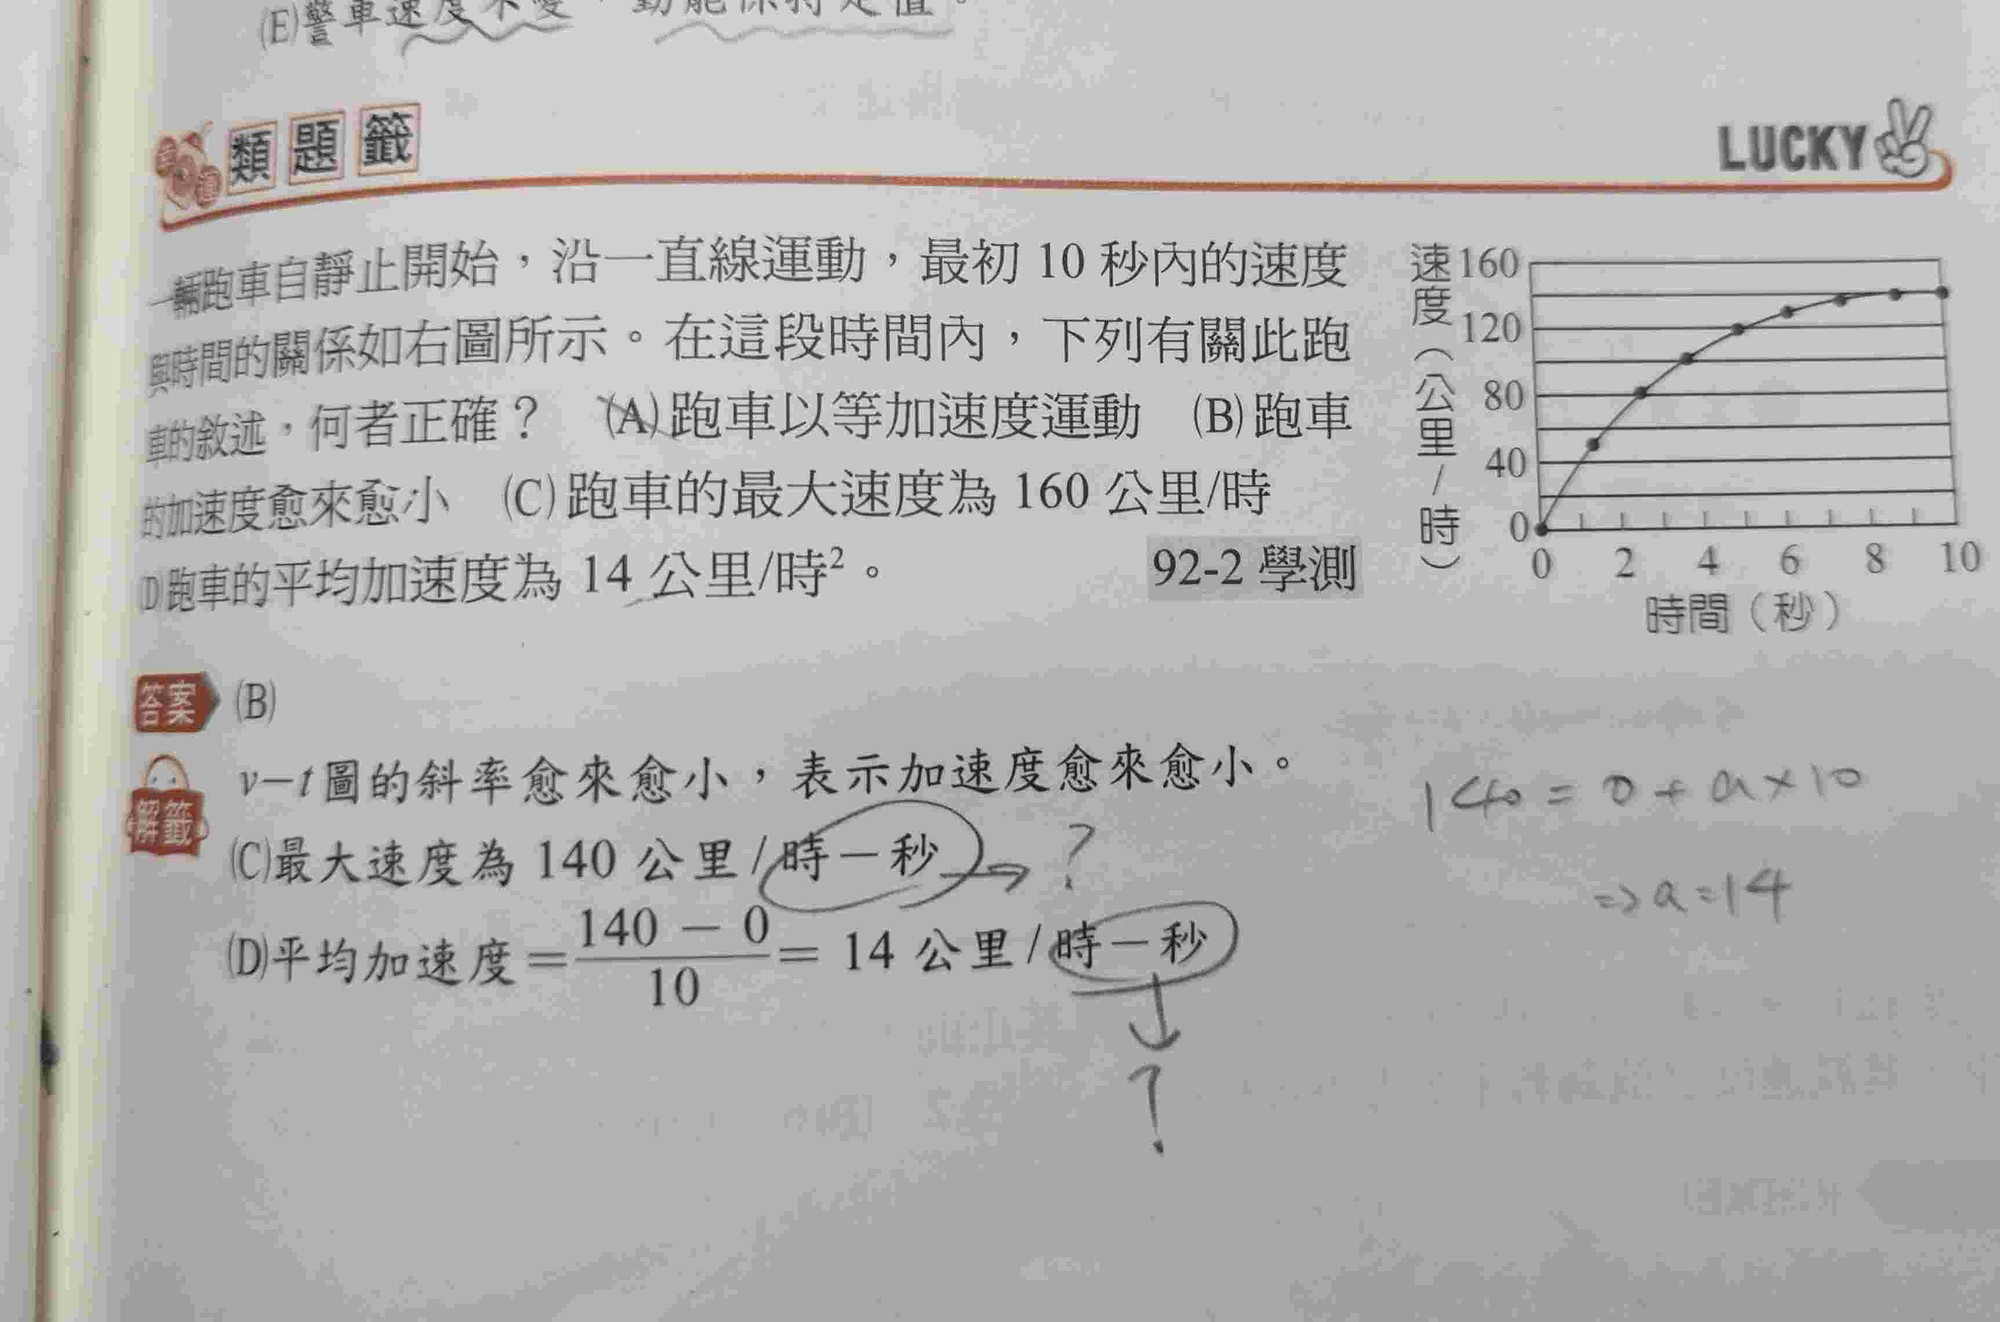 (E)警車速度不變，動能保持定值。
類題籤
LUCKY
一輛跑車自靜止開始，沿一直線運動，最初 10 秒內的速度
與時間的關係如右圖所示。在這段時間內，下列有關此跑
車的敘述，何者正確？ (A)跑車以等加速度運動 (B)跑車
的加速度愈來愈小 (C)跑車的最大速度為 160 公里/時
(D)跑車的平均加速度為 14 公里/時²。 92-2 學測
速度（公里/時）
160
120
80
40
0
0 2 4 6 8 10
時間（秒）
答案 (B)
解籤 v－t圖的斜率愈來愈小，表示加速度愈來愈小。
(C)最大速度為 140 公里/時－秒 → ?
(D)平均加速度＝140 － 0/10＝ 14 公里/時－秒
↓
?
140 = 0 + a×10
⇒ a=14